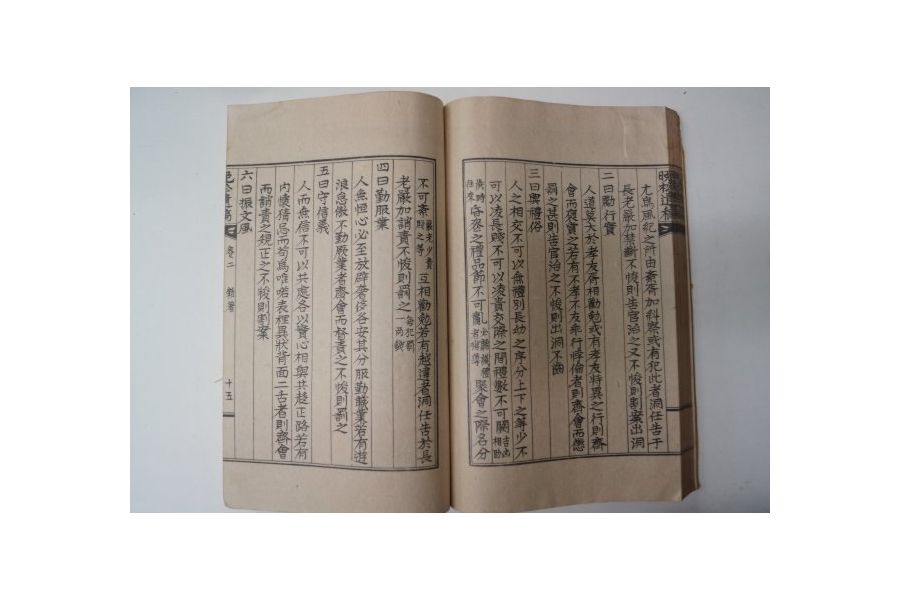 尤爲風紀之所由紊胥加糾察或有犯此者洞任告于
長老嚴加禁斷不悛則告官治之又不悛則割案出洞
二曰勵行實
人道莫大於孝友胥相勸勉或有孝友特異之行則齊
會而褒賞之若有不孝不友乖行悖倫者則齊會而懲
罰之甚則告官治之不悛則出洞不齒
三曰興禮俗
人之相交不可以無禮別長幼之序分上下之等少不
可以凌長賤不可以凌貴交際之間禮數不可闕吉凶相助
歲時往來各盡之禮品節不可亂聚會之際名分
不可紊之等互相勸勉若有越違者洞任告於長
老嚴加誚責不悛則罰之每犯罰一兩錢
四曰勤服業
人無恒心必至放辟奢侈各安其分服勤職業若有遊
浪怠傲不勤厥業者齊會而督責之不悛則罰之
五曰守信義
人而無信不可以共處各以實心相與共趍正路若有
內懷猜忌而苟爲唯喏表裡異狀背面二舌者則齊會
而誚責之規正之不悛則割案
六曰振文風
卷二
雜著
十五